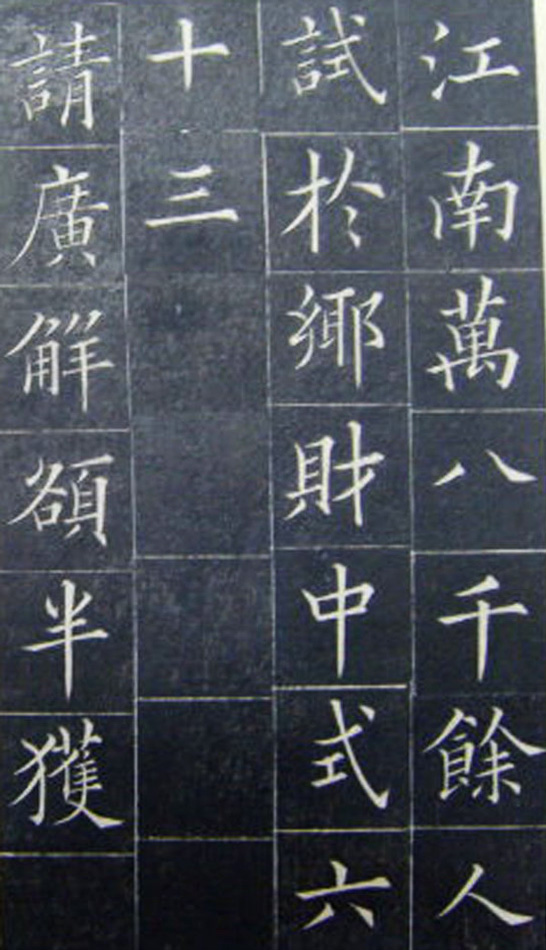 江南萬八千餘人
試扵鄉財中式六
十三
請廣觧頟半獲